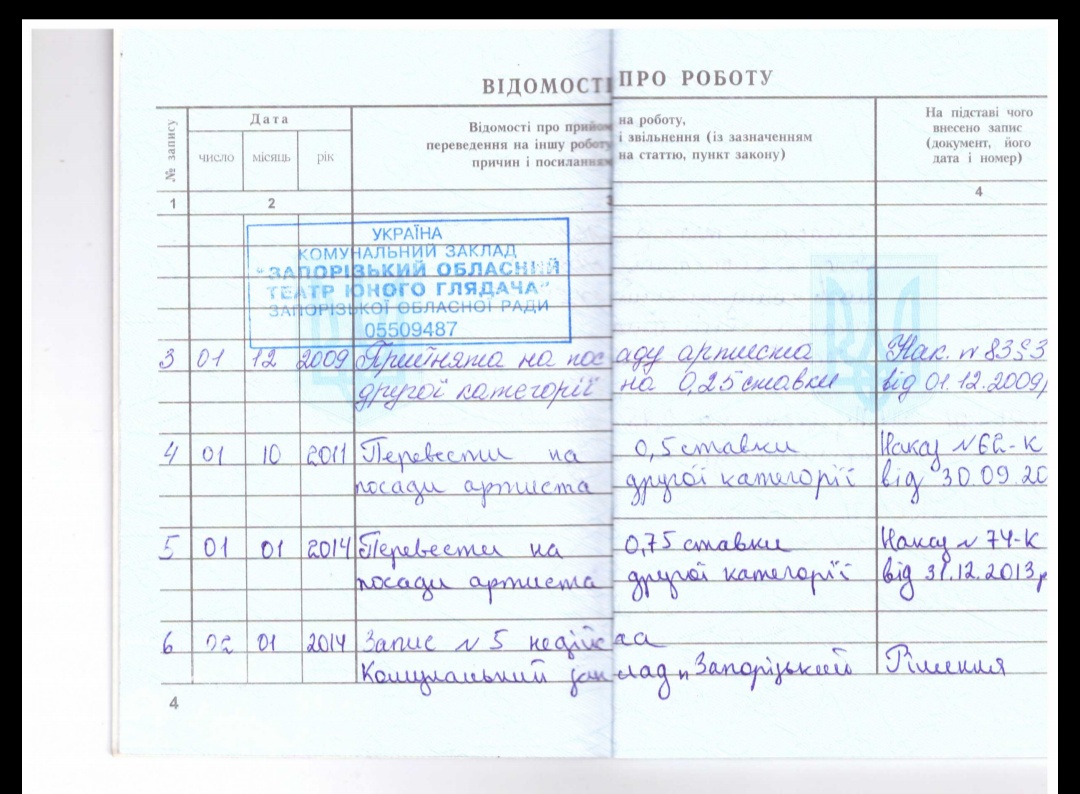 ВІДОМОСТІ ПРО РОБОТУ
№ запису
Дата
число місяць рік
Відомості про прийом на роботу,
переведення на іншу роботу і звільнення (із зазначенням
причин і посиланням на статтю, пункт закону)
На підставі чого
внесено запис
(документ, його
дата і номер)
1 2 3 4
УКРАЇНА
КОМУНАЛЬНИЙ ЗАКЛАД
"ЗАПОРІЗЬКИЙ ОБЛАСНИЙ
ТЕАТР ЮНОГО ГЛЯДАЧА"
ЗАПОРІЗЬКОЇ ОБЛАСНОЇ РАДИ
05509487
3 01 12 2009 Прийнята на посаду артиста Нак. №
другої категорії на 0,25 ставки від 01.12.2009р
4 01 10 2011 Перевести на 0,5 ставки Наказ №62-К
посади артиста другої категорії від 30.09.20
5 01 01 2014 Перевести на 0,75 ставки Наказ № 74-К
посади артиста другої категорії від 31.12.2013р
6 02 01 2014 Запис №5 недійсна
Комунальний заклад "Запорізький Рішення
4